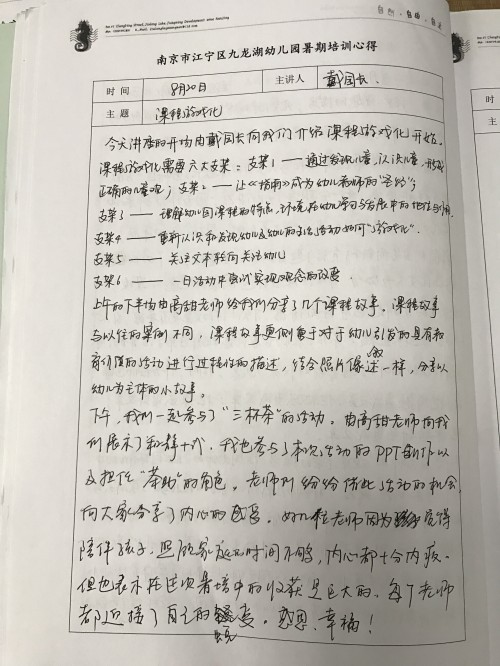 自然·自由·自主
南京市江宁区九龙湖幼儿园暑期培训心得
时间 8月30日 主讲人 戴园长
主题 课程游戏化
今天讲座的开场由戴园长向我们介绍课程游戏化开始。
课程游戏化需要六大支架:支架1——通过发现儿童,认识儿童,形成
正确的儿童观;支架2——让《指南》成为幼儿教师的"圣经";
支架3——理解幼儿园课程的特点,环境在幼儿学习与发展中的地位与作用
支架4——重新认识和发现幼儿及幼儿的活动如何"游戏化"。
支架5——关注文本转向关注幼儿
支架6——一日活动中尝试实现观念的改变
上午的下半场由高甜老师给我们分享了几个课程故事。课程故事
与以往的案例不同,课程故事更侧重于对于幼儿引发的具有教
育价值的活动进行过程性的描述,结合照片像叙述一样,分享以
幼儿为主体的小故事。
下午,我们一起参与了"三杯茶"的活动。由高甜老师向我
们展示了和静十式,我也参与了本次活动的PPT制作以
及担任"茶助"的角色。老师们纷纷借此活动的机会
向大家分享了内心的感受。好几位老师因为觉得
陪伴孩子,照顾家庭的时间不够,内心都十分内疚。
但也表示在这次暑培中的收获是巨大的。每个老师
都迎接了自己的蜕变。感恩、幸福!